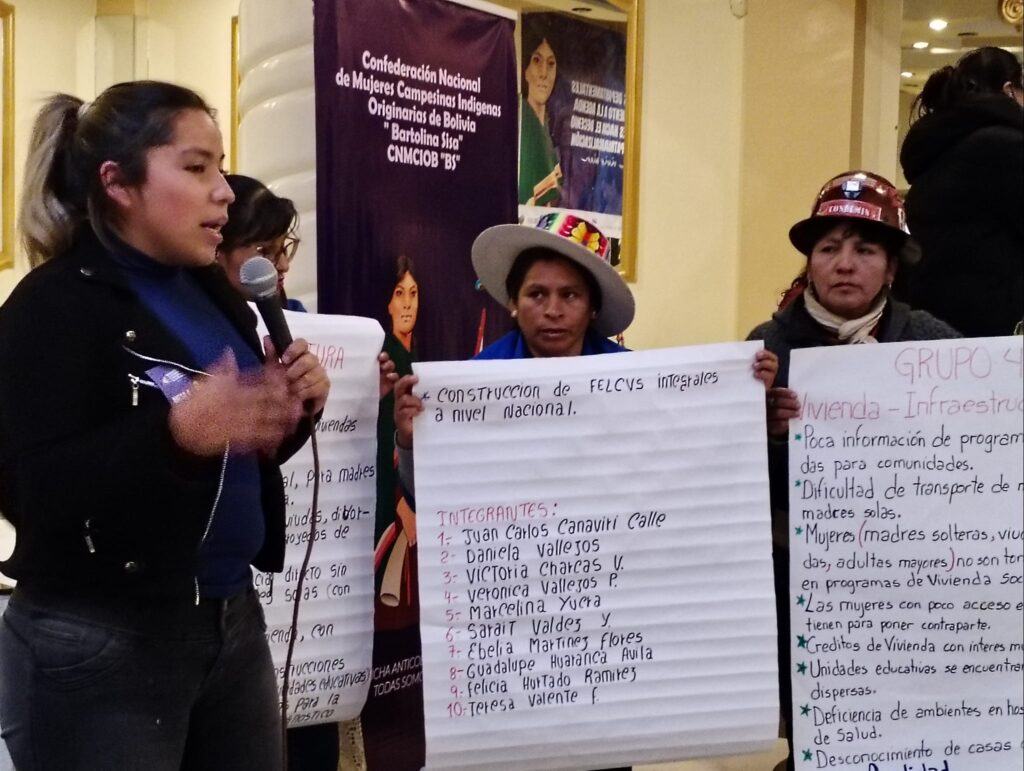 Confederación Nacional
de Mujeres Campesinas Indígenas
Originarias de Bolivia
"Bartolina Sisa"
CNMCIOB "BS"
COSDEMIN
TURA
viendas
al, Para madres
viudas, divor-
directo sin
solas (con
vienda, con
strucciones
idades educativas)
para la
nostico
TODAS SOMO
* CONSTRUCCION de FELCVS integrales
a nivel Nacional.
INTEGRANTES:
1- Juan Carlos Canaviri Calle
2- Daniela Vallejos
3- Victoria Charcas V.
4- Veronica Vallejos P.
5- Marcelina Yucra
6- Sarait Valdez Y.
7- Ebelia Martinez Flores
8- Guadalupe Huaranca Avila
9- Felicia Hurtado Ramirez
10- Teresa Valente F.
GRUPO 4
Vivienda - Infraestruc
* Poca información de program
das para comunidades.
* Dificultad de transporte de m
madres solas.
* Mujeres (madres solteras, viu
das, adultas mayores) no son tom
en programas de Vivienda Soc
* Las mujeres con poco acceso e
tienen para poner contraparte.
* Creditos de Vivienda con interes m
* Unidades educativas se encuentra
dispersas.
* Deficiencia de ambientes en hos
de Salud.
* Desconocimiento de casas